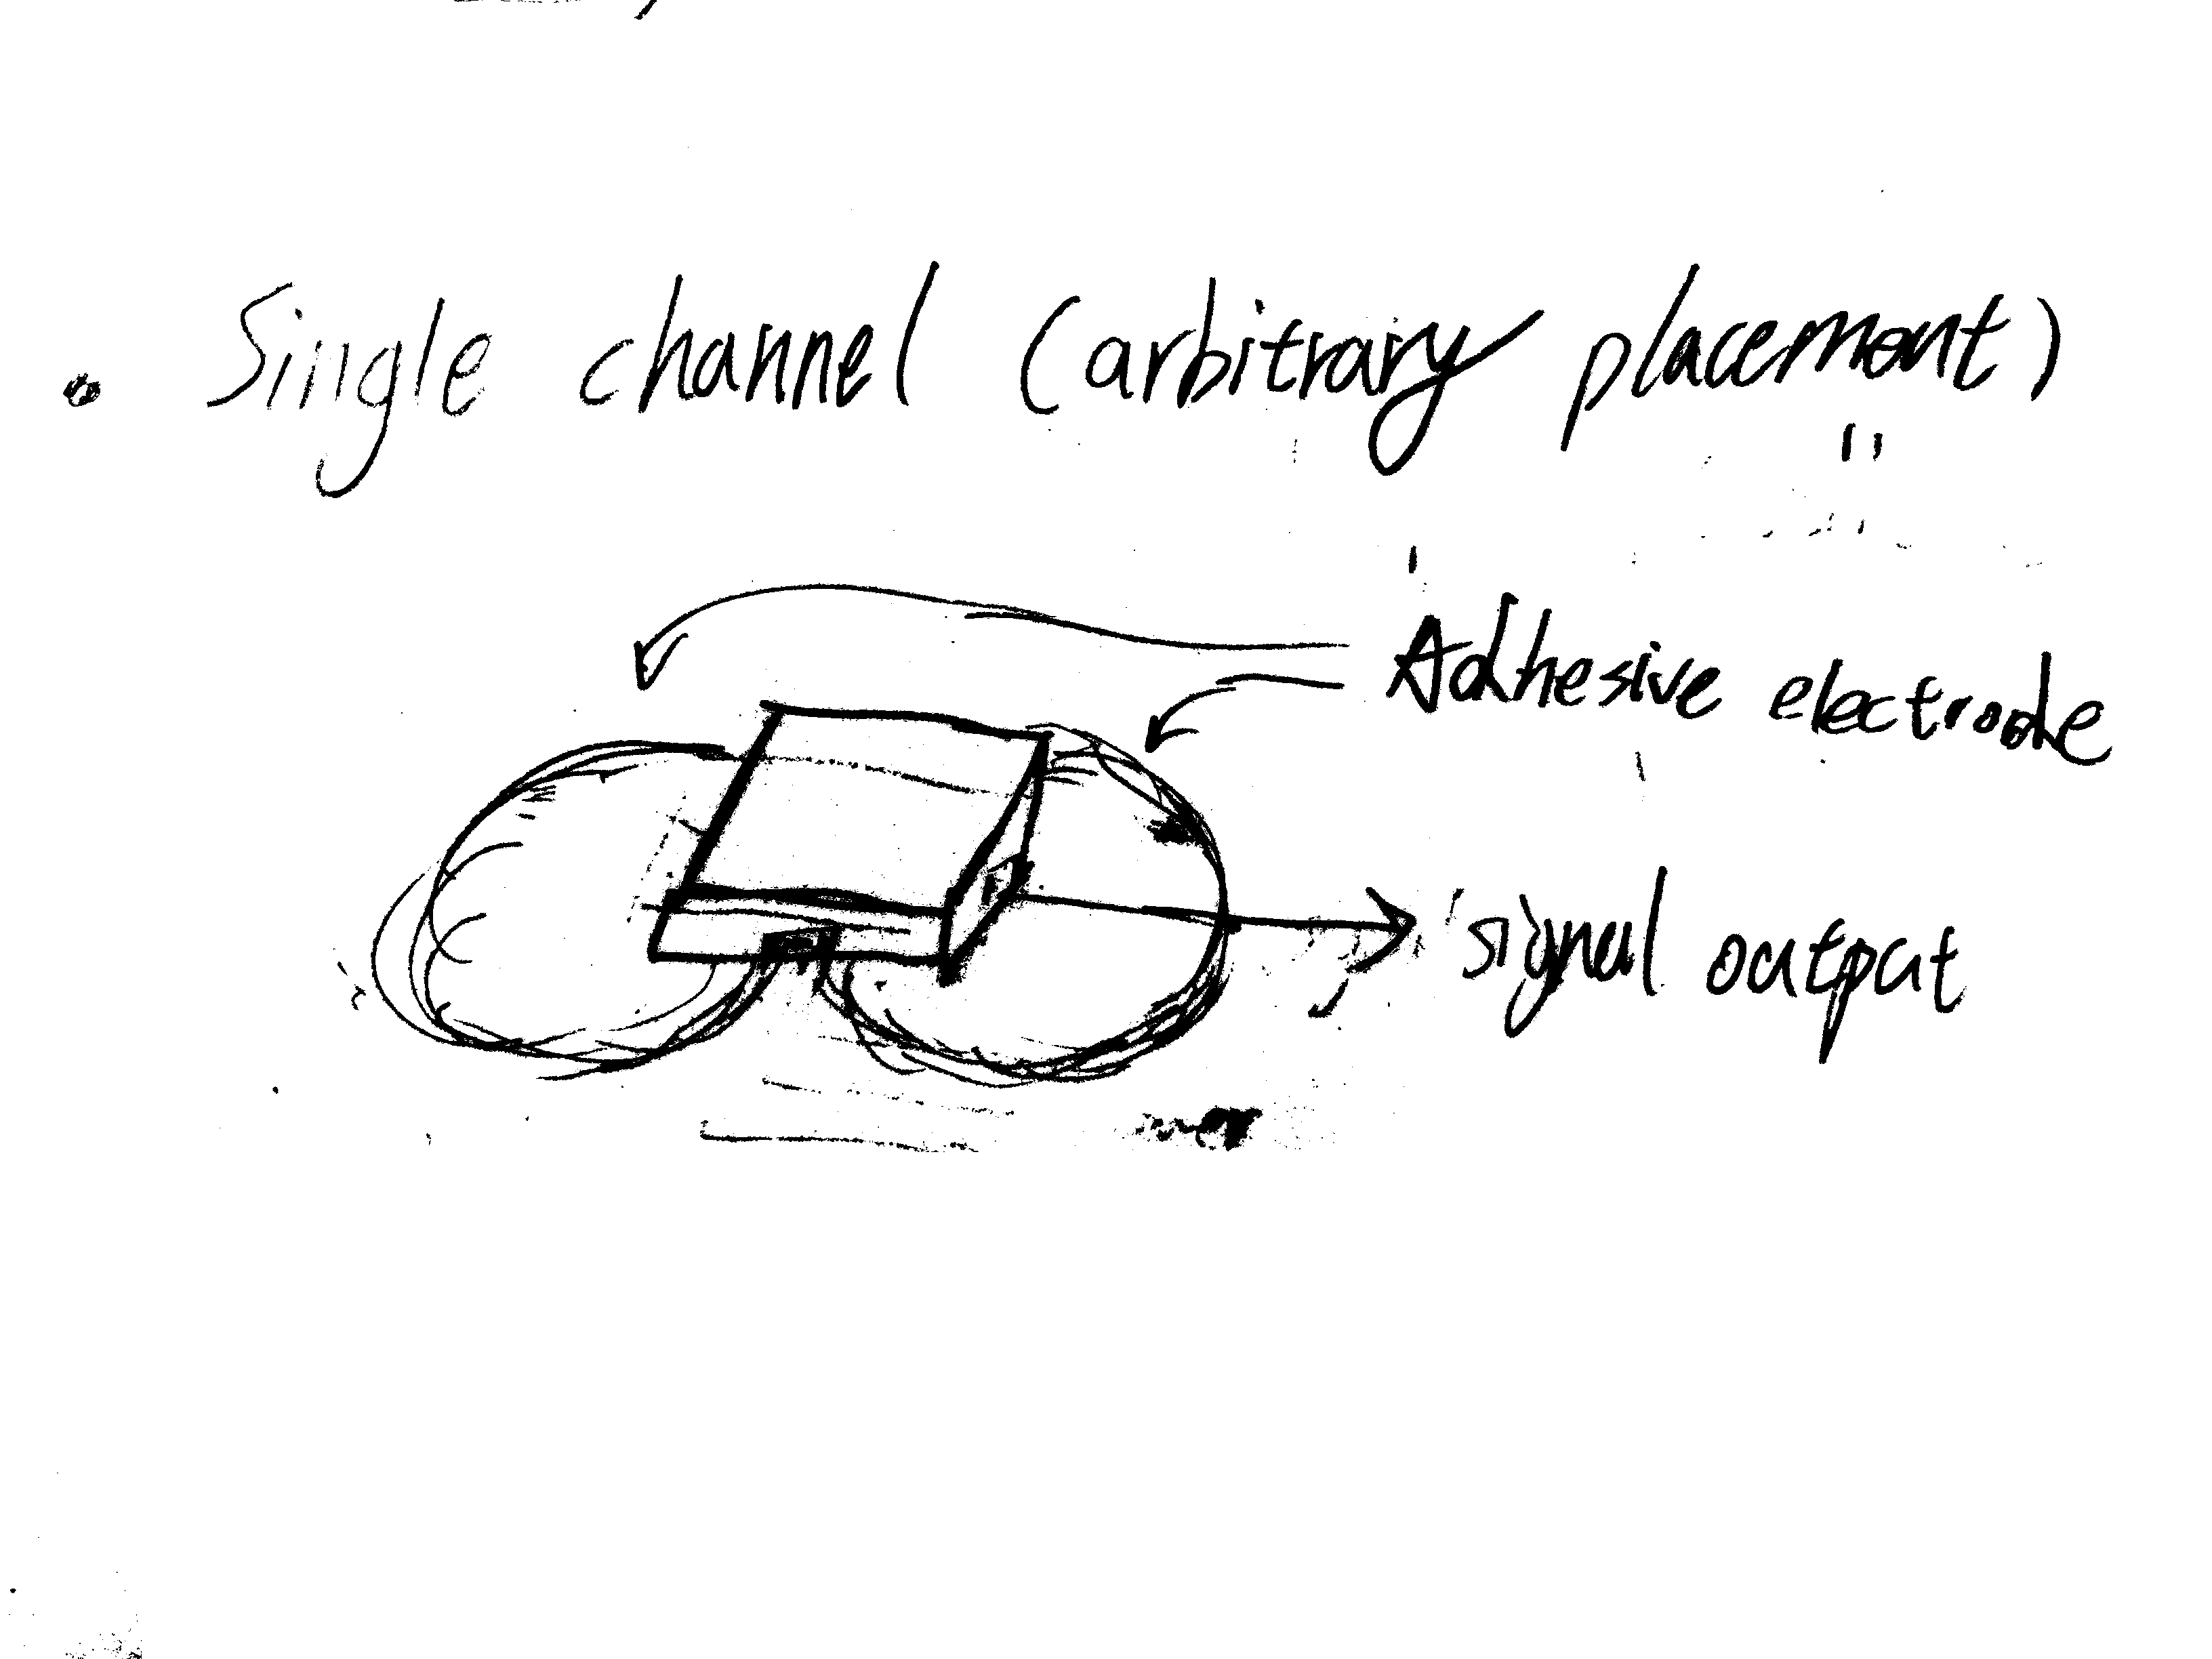 • Single channel (arbitrary placement)
Adhesive electrode
signal output